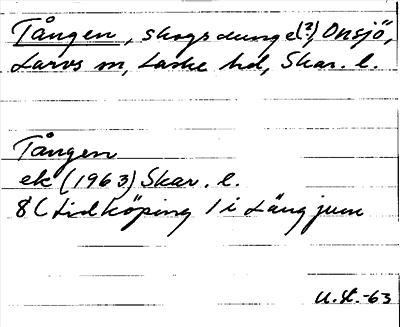 Tången, skogsdunge(?), Onsjö,
Larvs sn, Laske hd, Skar. l.
Tången
ek (1963) Skar. l.
8C Lidköping 1 i Längjum
U.st.-63